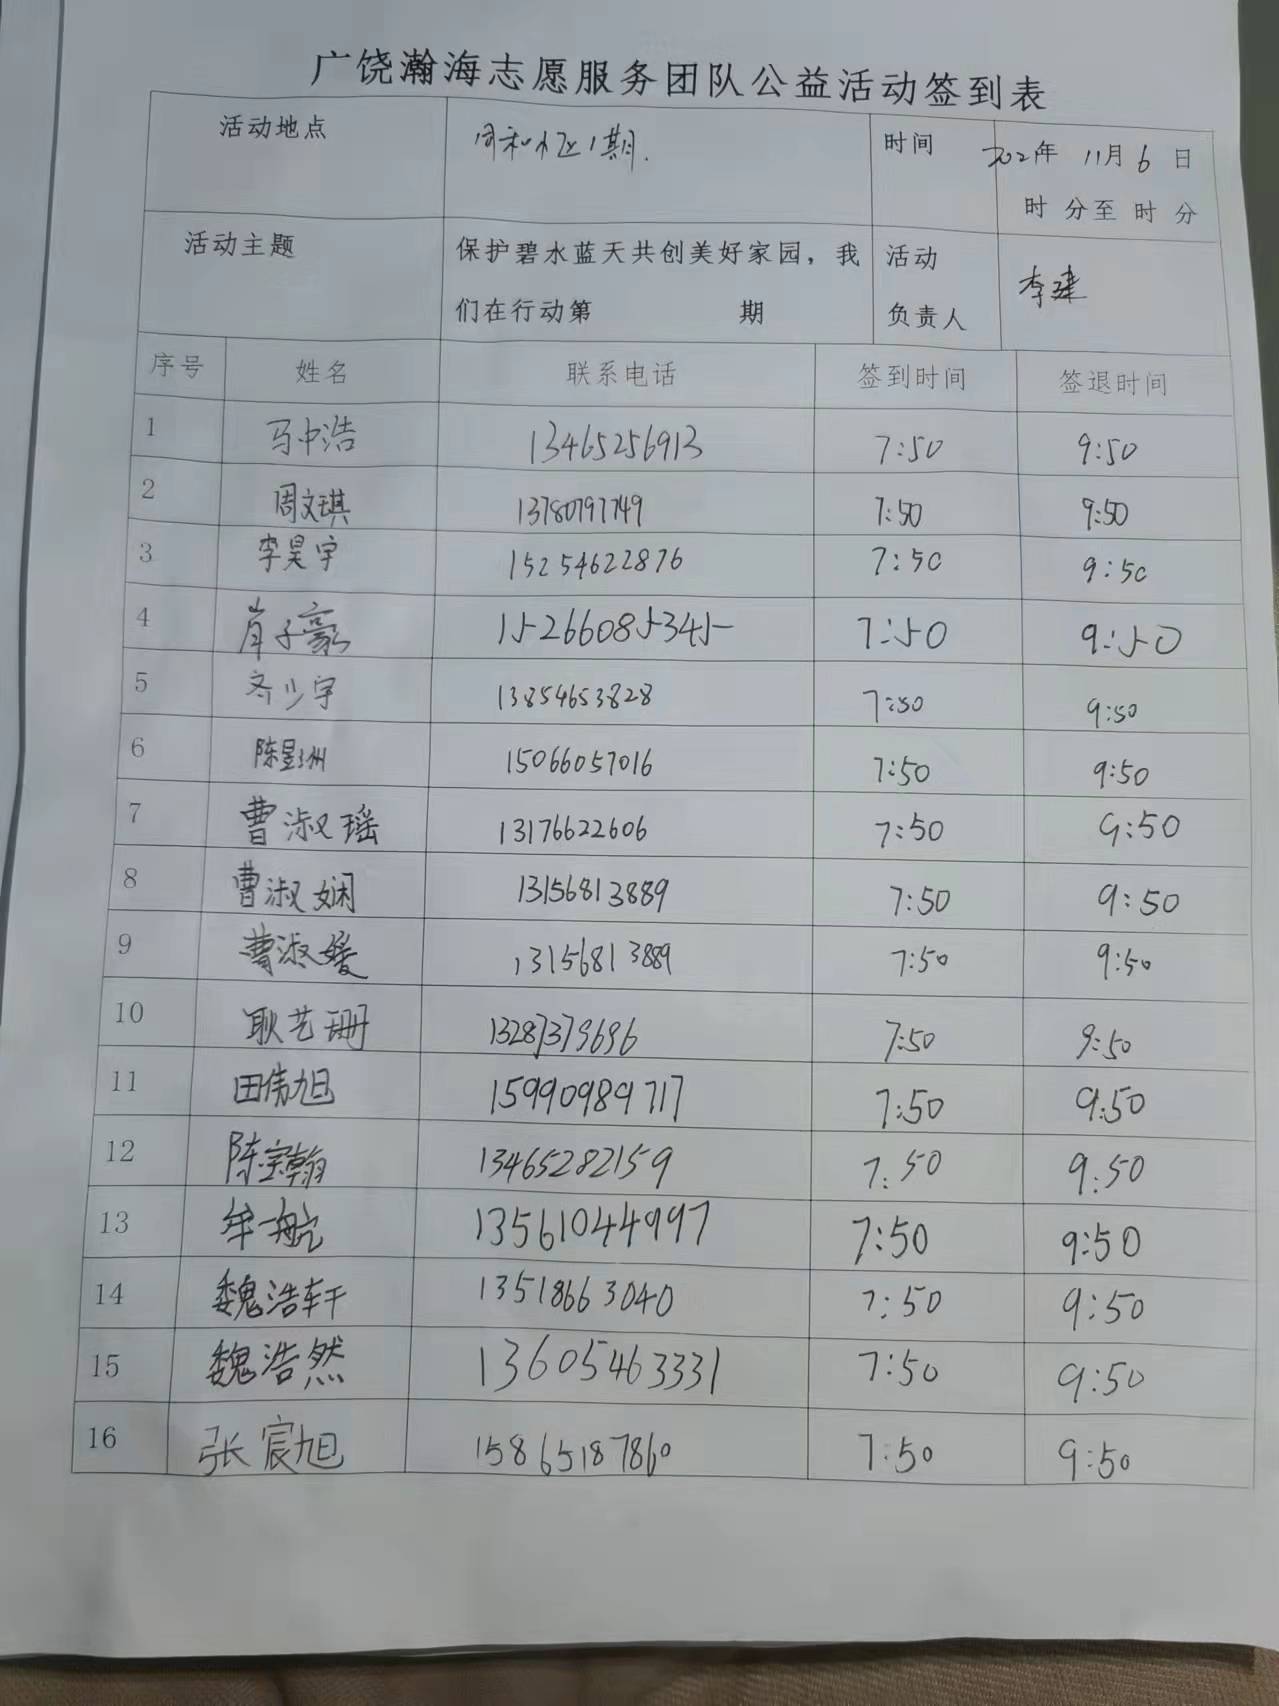 广饶瀚海志愿服务团队公益活动签到表
活动地点 同和小区1期. 时间 2022年 11月6日
时 分至 时 分
活动主题 保护碧水蓝天共创美好家园，我 活动
们在行动第 期 负责人 李建
序号 姓名 联系电话 签到时间 签退时间
1 马中浩 13465256913 7:50 9:50
2 周文琪 13780797749 7:50 9:50
3 李昊宇 15254622876 7:50 9:50
4 肖子豪 15266085345 7:50 9:50
5 齐少宇 13854653828 7:50 9:50
6 陈昱洲 15066057016 7:50 9:50
7 曹淑瑶 13176622606 7:50 9:50
8 曹淑娴 13156813889 7:50 9:50
9 曹淑媛 13156813889 7:50 9:50
10 耿艺珊 13287379696 7:50 9:50
11 田伟旭 15990989717 7:50 9:50
12 陈宝翰 13465282159 7:50 9:50
13 牟一航 13561044997 7:50 9:50
14 魏浩轩 13518663040 7:50 9:50
15 魏浩然 13605463331 7:50 9:50
16 张宸旭 15865187860 7:50 9:50